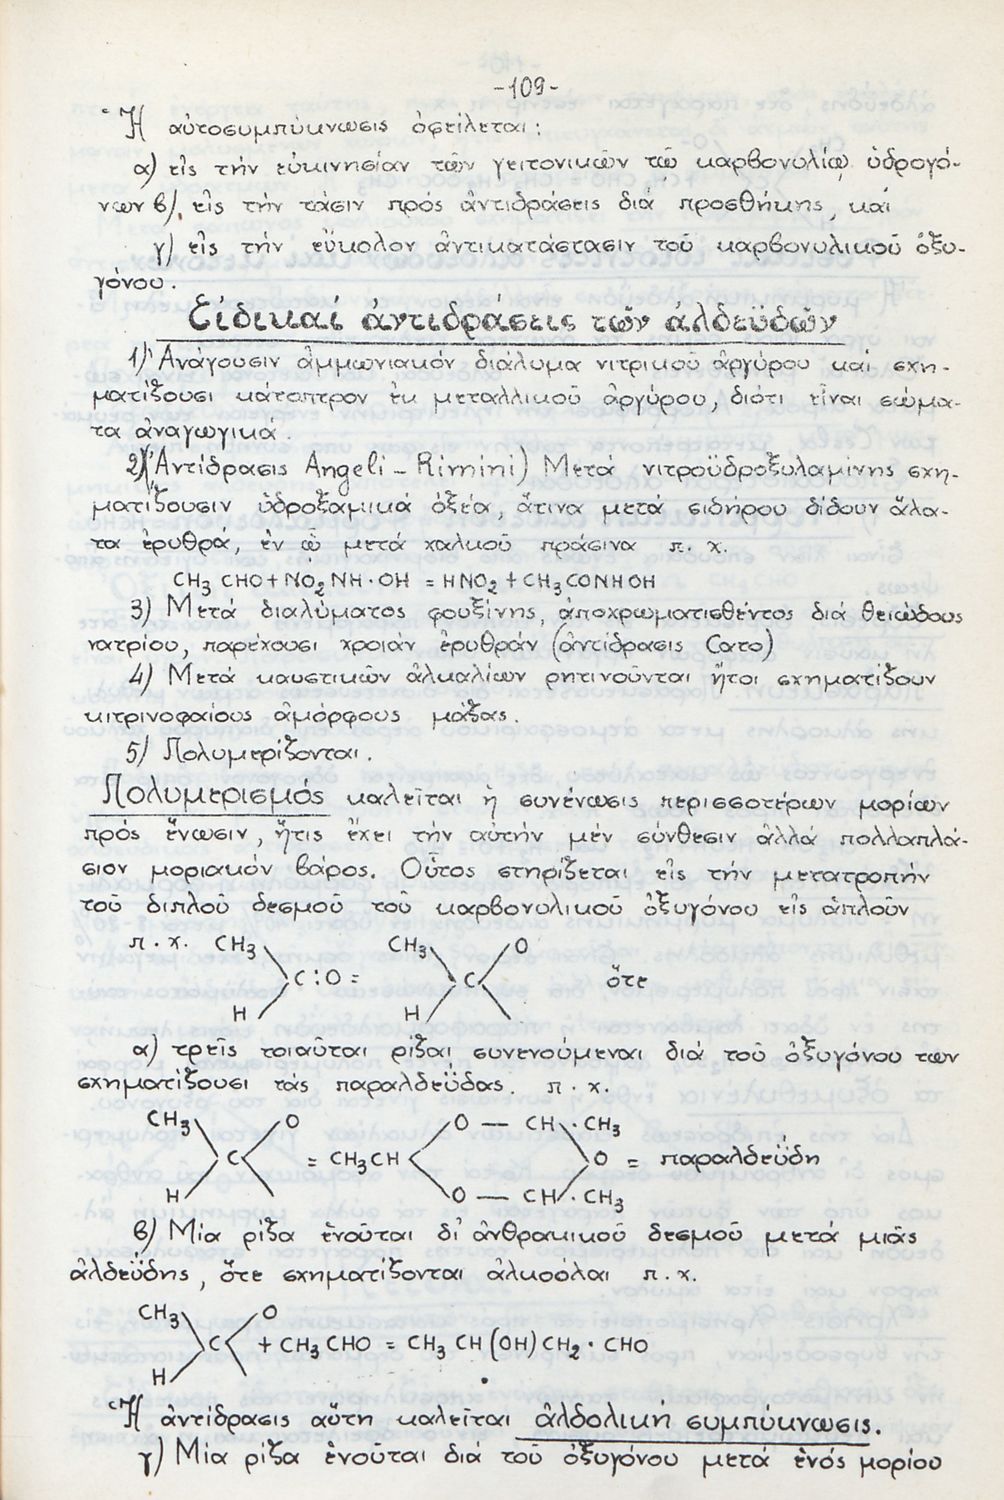 -109-
Ἡ αὐτοσυμπύκνωσις ὀφείλεται:
α) εἰς τήν εὐκινησίαν τῶν γειτονικῶν τῷ καρβονυλίῳ ὑδρογό-
νων β) εἰς τήν τάσιν πρός ἀντιδράσεις διά προσθήκης, καί
γ) εἰς τήν εὔκολον ἀντικατάστασιν τοῦ καρβονυλικοῦ ὀξυ-
γόνου.
Εἰδικαί ἀντιδράσεις τῶν ἀλδεϋδῶν
1) Ἀνάγουσιν ἀμμωνιακόν διάλυμα νιτρικοῦ ἀργύρου καί σχη-
ματίζουσι κάτοπτρον ἐκ μεταλλικοῦ ἀργύρου, διότι εἶναι σώμα-
τα ἀναγωγικά.
2) (Ἀντίδρασις Angeli - Rimini) Μετά νιτροϋδροξυλαμίνης σχη-
ματίζουσιν ὑδροξαμικά ὀξέα, ἅτινα μετά σιδήρου δίδουν ἅλα-
τα ἐρυθρά, ἐν ᾧ μετά χαλκοῦ πράσινα π.χ.
CH3 CHO + NO2 NH·OH = HNO2 + CH3CONHOH
3) Μετά διαλύματος φουξίνης, ἀποχρωματισθέντος διά θειώδους
νατρίου, παρέχουσι χροιάν ἐρυθράν (ἀντίδρασις Cato)
4) Μετά καυστικῶν ἀλκαλίων ρητινοῦνται ἤτοι σχηματίζουν
κιτρινοφαίους ἀμόρφους μάζας.
5) Πολυμερίζονται.
Πολυμερισμός καλεῖται ἡ συνένωσις περισσοτέρων μορίων
πρός ἕνωσιν, ἥτις ἔχει τήν αὐτήν μέν σύνθεσιν ἀλλά πολλαπλά-
σιον μοριακόν βάρος. Οὗτος στηρίζεται εἰς τήν μετατροπήν
τοῦ διπλοῦ δεσμοῦ τοῦ καρβονυλικοῦ ὀξυγόνου εἰς ἁπλοῦν
π.χ. CH3 CH3 O
C:O = C ὅτε
H H
α) τρεῖς τοιαῦται ρίζαι συνενούμεναι διά τοῦ ὀξυγόνου των
σχηματίζουσι τάς παραλδεΰδας. π.χ.
CH3 O O — CH · CH3
C = CH3CH O = παραλδεΰδη
H O — CH · CH3
β) Μία ρίζα ἑνοῦται δι' ἀνθρακικοῦ δεσμοῦ μετά μιᾶς
ἀλδεΰδης, ὅτε σχηματίζονται ἀλκοόλαι π.χ.
CH3 O
C + CH3 CHO = CH3 CH (OH) CH2 · CHO
H
Ἡ ἀντίδρασις αὕτη καλεῖται ἀλδολική συμπύκνωσις.
γ) Μία ρίζα ἑνοῦται διά τοῦ ὀξυγόνου μετά ἑνός μορίου